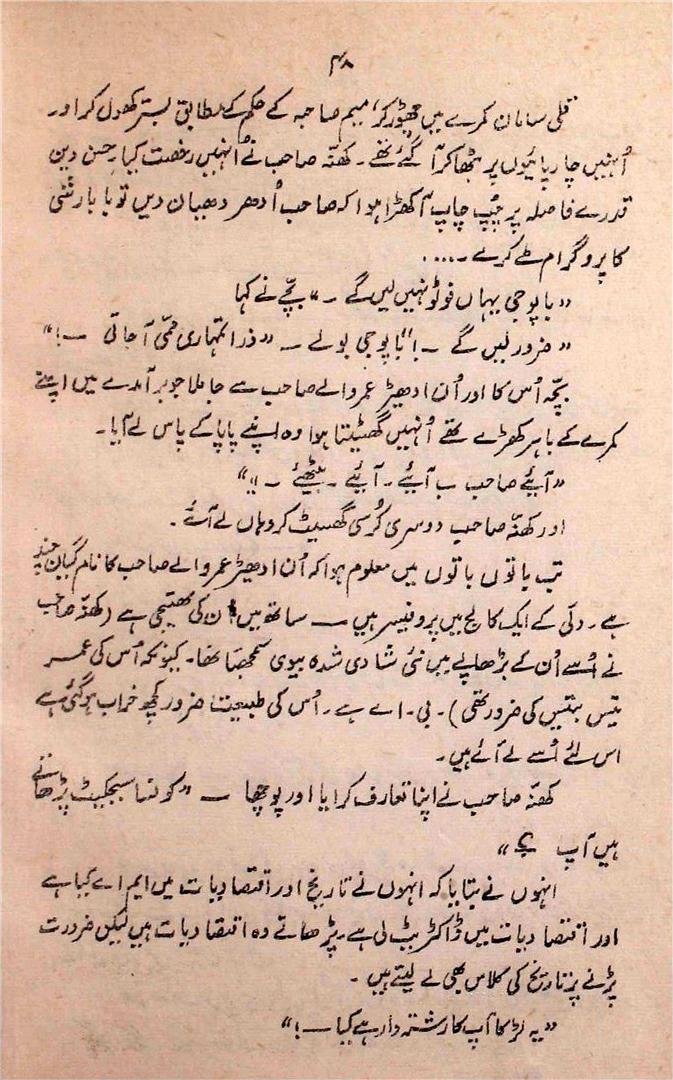 ۴۸
قلی سامان کمرے میں چھوڑ کر، میم صاحبہ کے حکم کے مطابق بستر کھول کر اور
اُنہیں چارپائیوں پر بچھا کر آ گئے تھے۔ کھنّہ صاحب نے اُنہیں رخصت کیا۔ حسن دین
قدرے فاصلہ پر چُپ چاپ آ کھڑا ہوا کہ صاحب اُدھر دھیان دیں تو با بارنتی
کا پروگرام طے کرے۔....
”باپو جی یہاں فوٹو نہیں لیں گے۔“ بچّے نے کہا
”ضرور لیں گے ۔!“ باپو جی بولے ۔ ”ذرا تمہاری ممّی آ جاتی ۔!“
بچّہ اُس کا اور اُن ادھیڑ عمر والے صاحب سے جا ملا جو برآمدے میں اپنے
کمرے کے باہر کھڑے تھے اُنہیں گھیٹتا ہوا وہ اپنے پاپا کے پاس لے آیا۔
”آیئے صاحب ب آیئے۔ آیئے۔ بیٹھیے ۔!!“
اور کھنّہ صاحب دوسری کُرسی گھسیٹ کر وہاں لے آئے۔
تب باتوں باتوں میں معلوم ہوا کہ اُن ادھیڑ عمر والے صاحب کا نام گیان چند
ہے۔ دلّی کے ایک کالج میں پروفیسر ہیں — ساتھ میں اُن کی بھتیجی ہے (کھنّہ صاحب
نے اُسے اُن کے بڑھاپے میں نئی شادی شدہ بیوی سمجھا تھا۔ کیونکہ اُس کی عمر
تیس بتیس کی ضرور تھی)۔ بی۔ اے ہے۔ اُس کی طبیعت ضرور کچھ خراب ہو گئی ہے
اس لئے اُسے لے آئے ہیں۔
کھنّہ صاحب نے اپنا تعارف کرایا اور پوچھا — ”کونسا سبجکیٹ پڑھاتے
ہیں آپ ؟“
انہوں نے بتایا کہ انہوں نے تاریخ اور اقتصادیات میں ایم اے کیا ہے
اور اقتصادیات میں ڈاکٹریٹ لی ہے۔ پڑھاتے وہ اقتصادیات ہیں لیکن ضرورت
پڑنے پر تاریخ کی کلاس بھی لے لیتے ہیں۔
”یہ لڑکا آپ کا رشتہ دار ہے کیا —!“